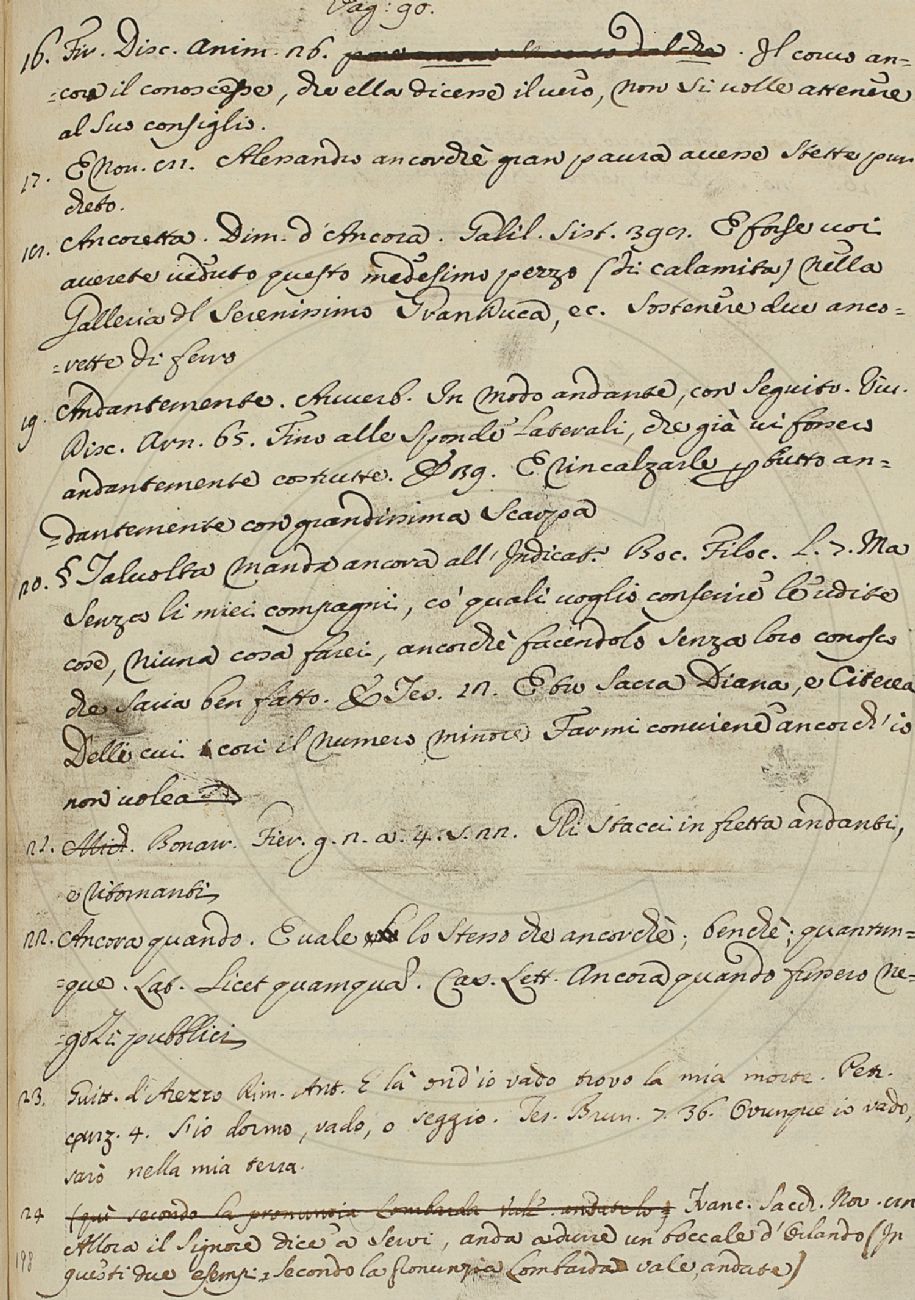 Pag: 90.
16. Fir. Disc. Anim. 26. . Il corvo an=
=cora il conoscesse, che ella dicesse il vero, non si volle attenere
al suo consiglio.
17. E Nov. Alessandro ancorchè gran paura avesse stette pur
cheto.
Ancoretta. Dim. d'Ancora. Galil. Sist. E forse voi
averete veduto questo medesimo pezzo (di calamita) nella
Galleria dl Serenissimo GranDuca, ec. Sostenere due anco=
=rette di ferro
19. Andantemente. Avverb. In modo andante, con seguito. Viv.
Disc. Arn. 65. Fino alle sponde laterali, che già vi fossero
andantemente costrutte. & 39. E rincalzarle p tutto an=
=dantemente con grandissima scarpa
20. § Talvolta manda ancora all' Indicat. Boc. Filoc. L. 7. Ma
senza li miei compagni, co' quali voglio conferire le udite
cose, niuna cosa farei, ancorchè facendolo senza loro conosco
che saria ben fatto. & Tes. E tu Sacra Diana, e Citerea
Delle cui cori il numero minore Farmi conviene ancorch' io
non volea
21. Bonarr. Fier. g. 2. a. 4. s. 22. Gli stacci in fretta andanti,
e ritornanti
22. Ancora quando. E vale lo stesso che ancorchè; benchè; quantun=
=que. Lat. Licet quamquā. Cas. Lett. Ancora quando fussero ne=
=gozi pubblici
23. Guitt. d'Arezzo Rim. Ant. E là ond' io vado trovo la mia morte. Petr.
canz. 4. S'io dormo, vado, o seggio. Tes. Brun. 7. 36. Ovunque io vado,
sarò nella mia terra.
24 (qui secondo la pronunzia Lombarda vale andate) Franc. Sacch. Nov.
Allora il Signore dice a servi, anda adurre un boccale d'Orlando (In
questi due esempi, secondo la pronunzia Lombarda vale, andate)
198